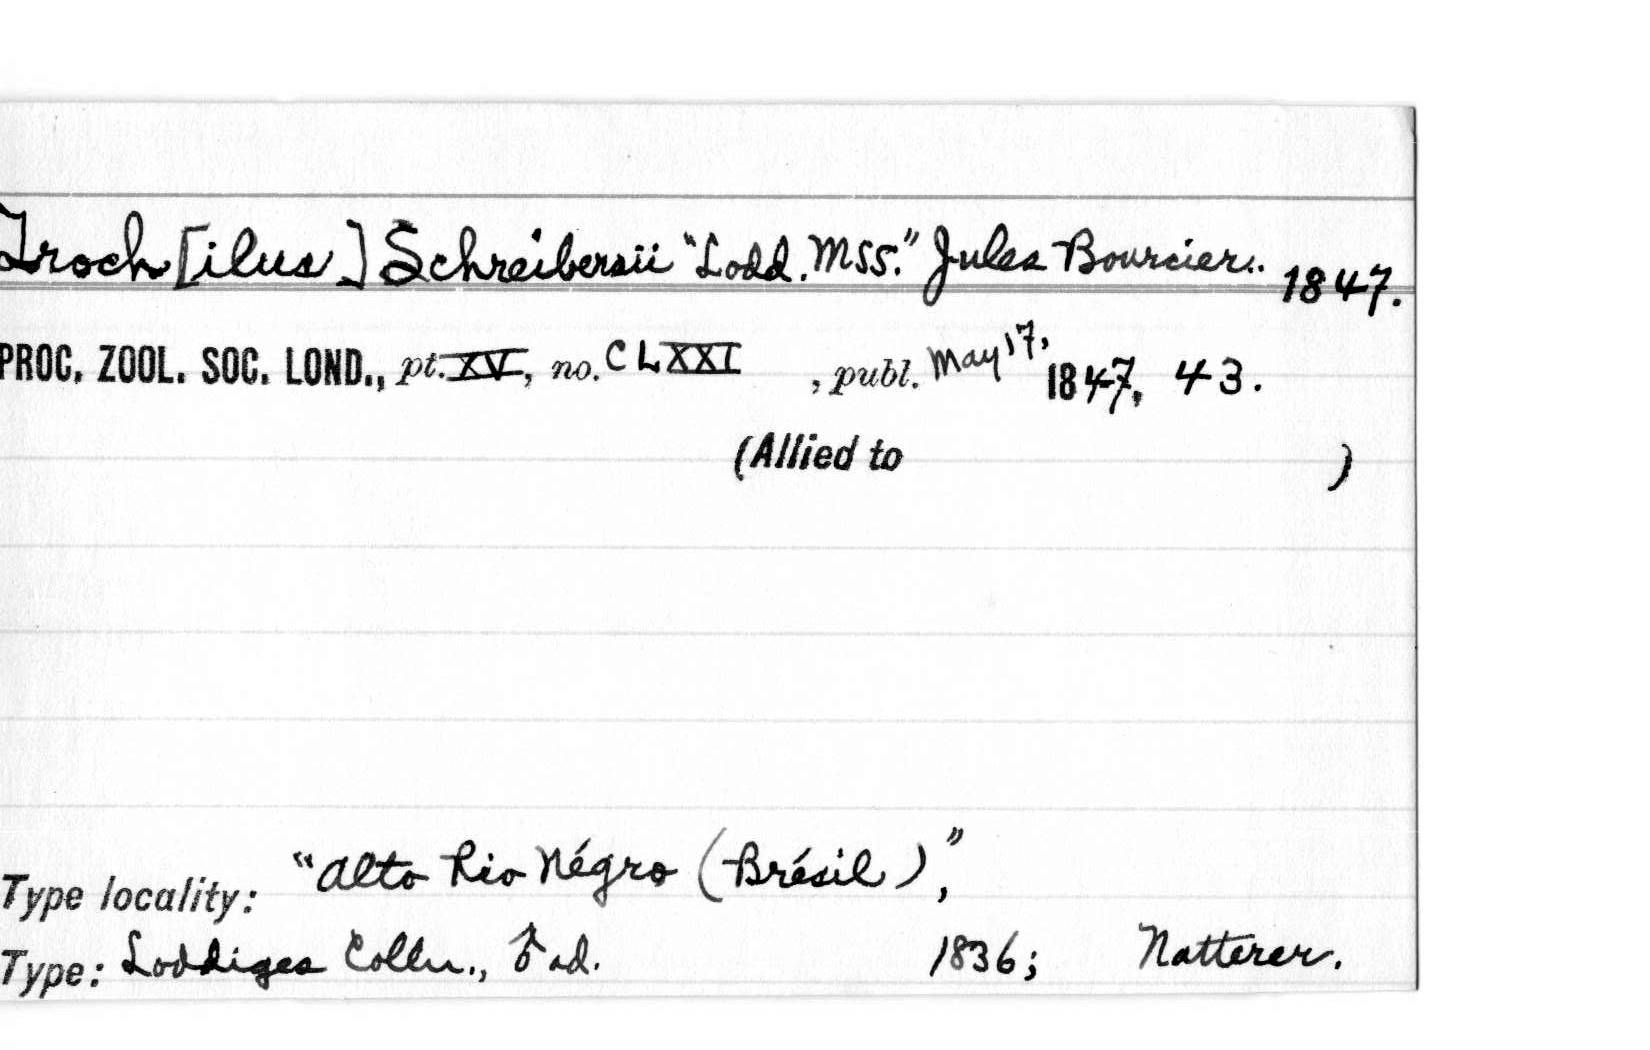 Troch[ilus] Schreibersii "Lodd. MSS." Jules Bourcier. 1847.
PROC. ZOOL. SOC. LOND., pt. XV, no. CLXXI, publ. May 17, 1847, 43.
(Allied to )
Type locality: "Alto Rio Négro (Brésil)",
Type: Loddiges Colln., ♂ ad. 1836; Natterer.